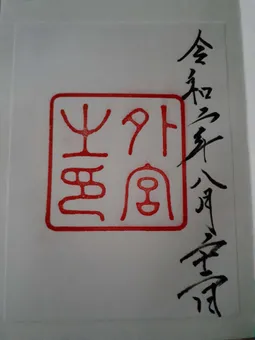 令和二年八月
外宮
之印